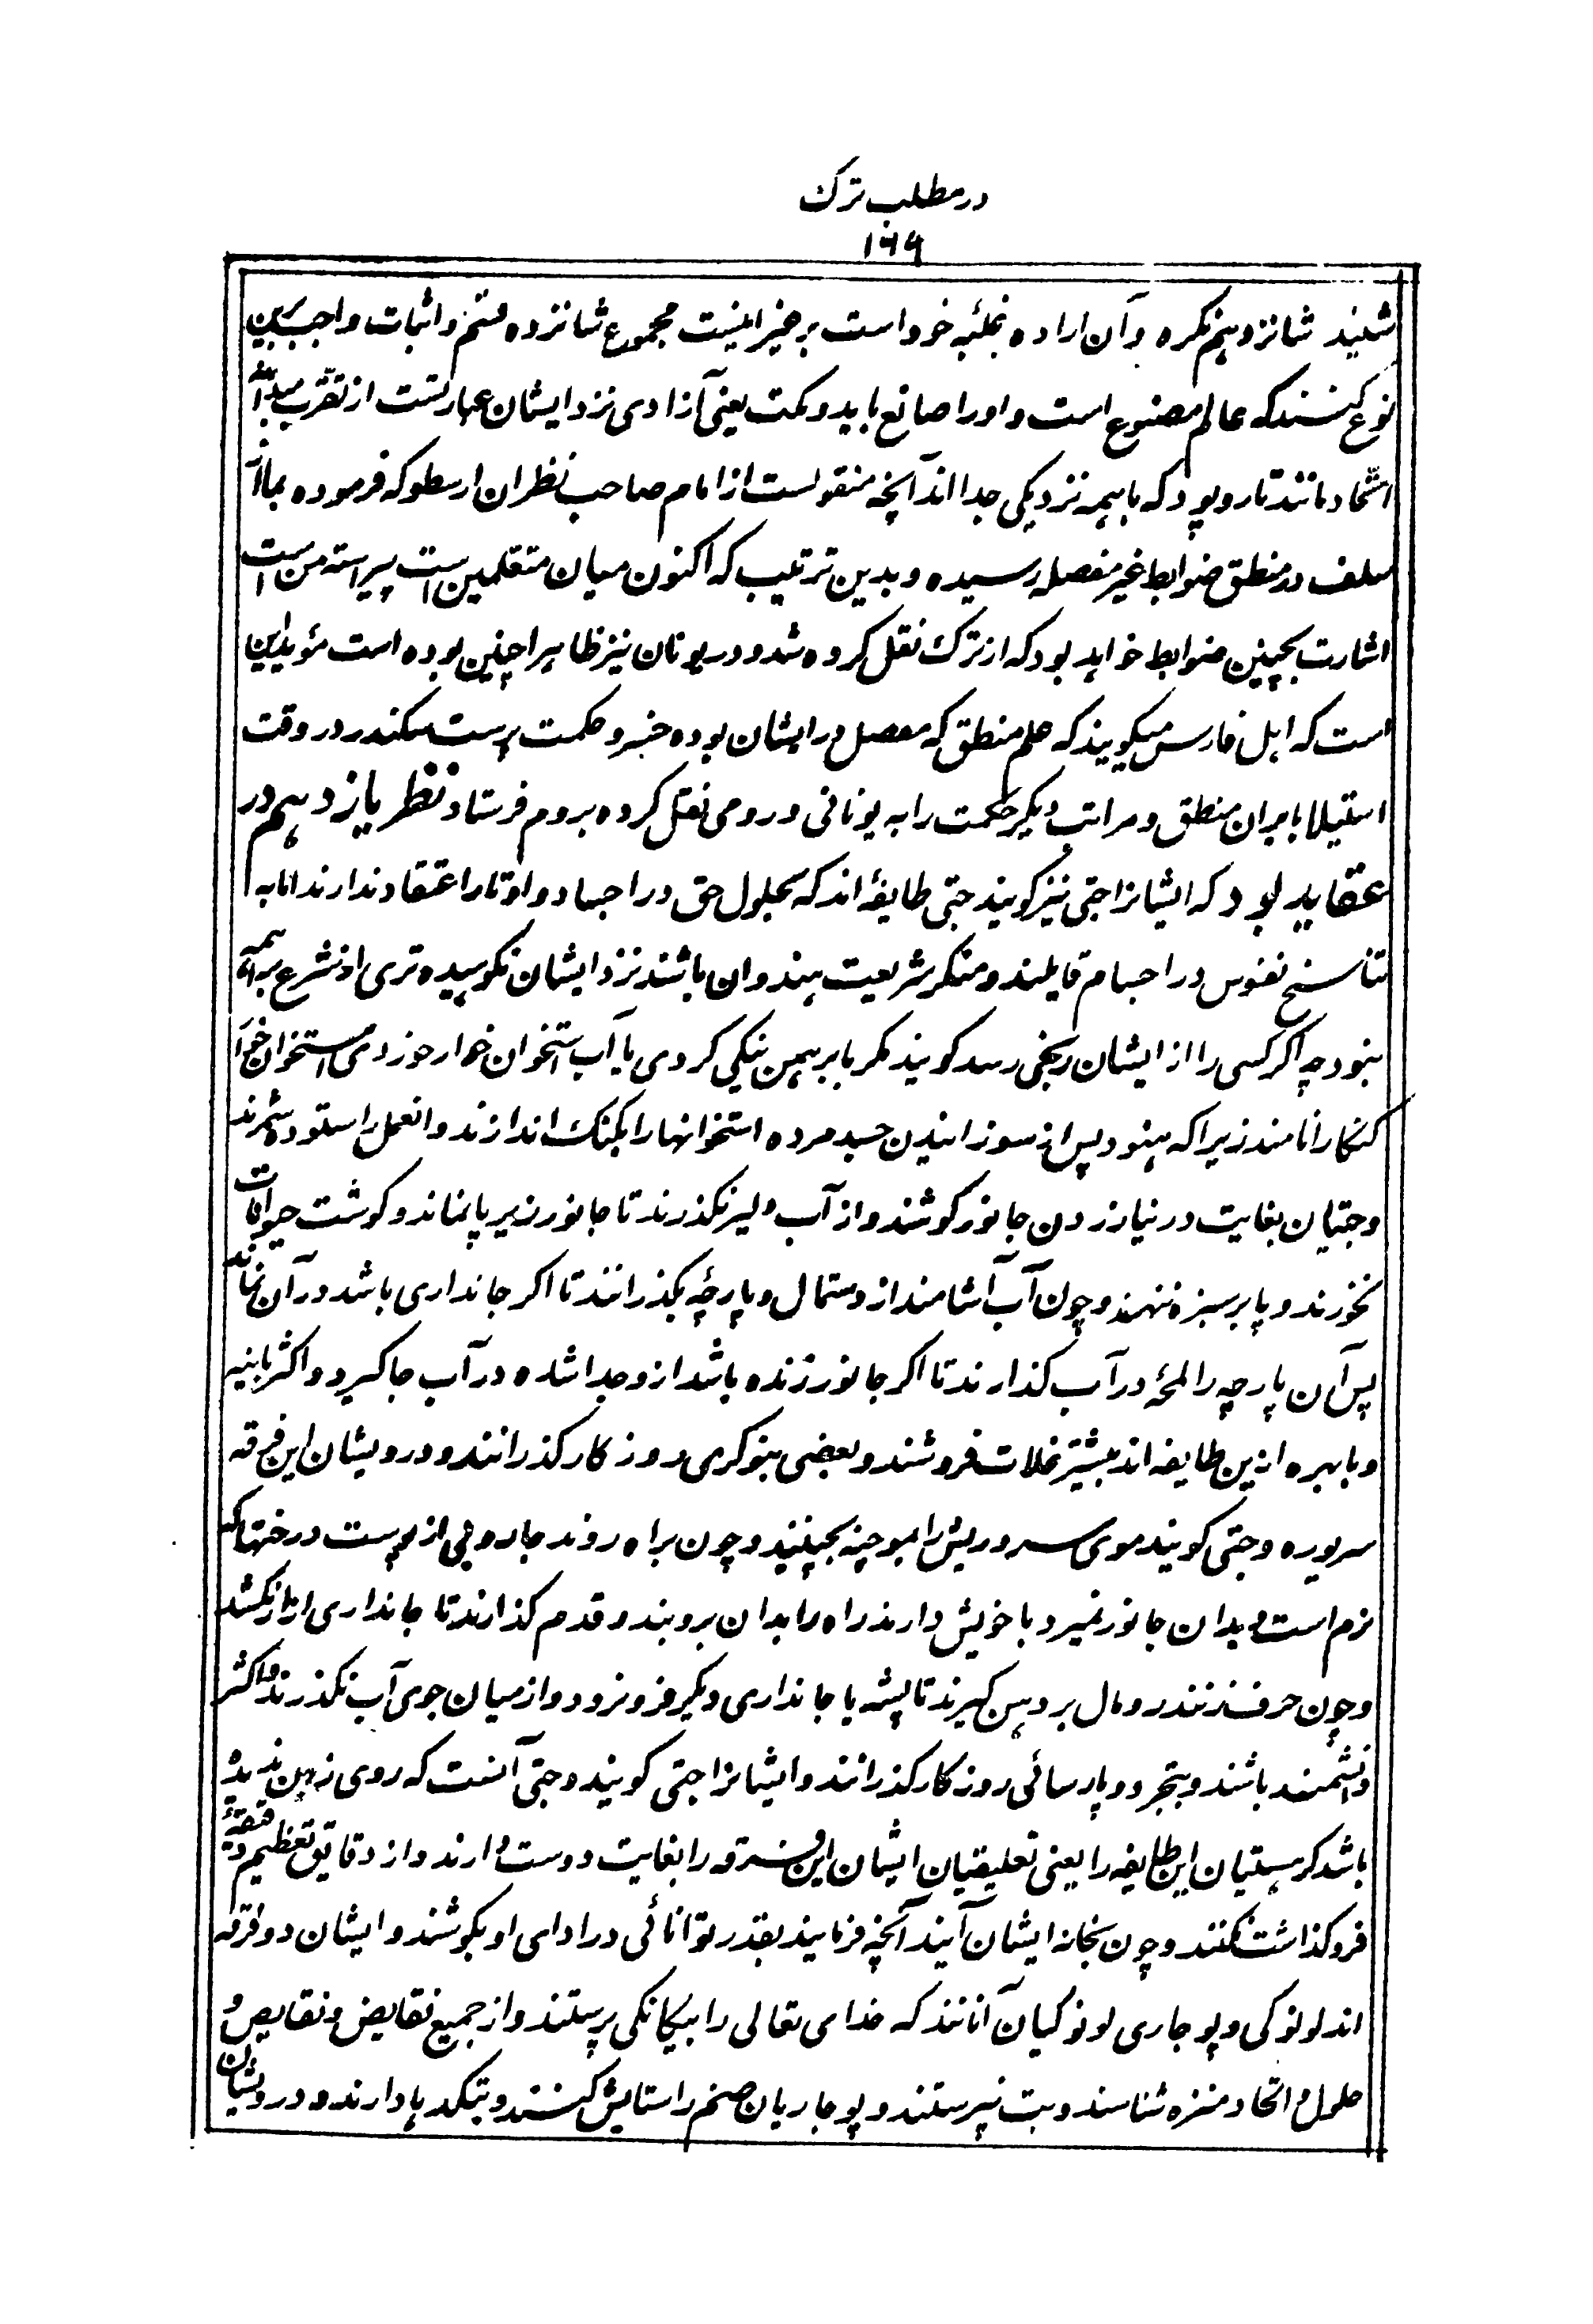 در مطلب ترک
۱۶۹
شنید شانزدهم نکره و آن اراده بغلبه خود است بر خیر اینست مجموع شانزده قسم و اثبات واجب بدین
نوع کنند که عالم مصنوع است و او را صانع باید و مکت یعنی آزادی نزد ایشان عبارتست از تقرب مبدا
اتحاد مانند تار و پود که باهمه نزدیکی جدا اند آنچه منقولست از امام صاحب نظران ارسطو که فرموده بما از
سلف در منطق ضوابط غیر مفصله رسیده و بدین ترتیب که اکنون میان متعلمین است پیراسته من است
اشارت بچنین ضوابط خواهد بود که از ترک نقل کرده شد و در یونان نیز ظاهرا چنین بوده است مؤید این
است که اهل فارس میکویند که علم منطق که مفصل در ایشان بوده خسرو حکمت پرست سکندر در وقت
استیلا بایران منطق و مراتب دیکر حکمت را به یونانی و رومی نقل کرده بروم فرستاد نظر یازدهم در
عقاید بود که ایشانرا جتی نیز کویند جتی طایفهٔ اند که بحلول حق در اجساد و اوتار اعتقاد ندارند اما به
تناسخ نفوس در اجسام قایلند و منکر شریعت هندوان باشند نزد ایشان نکوهیده تری از شرع براهمه
نبود چه اکر کسی را از ایشان رنجی رسد کویند مکر با برهمن نیکی کردی یا آب استخوان خوار خوردی استخوان خوار
کنکا را نامند زیرا که هنود پس از سوزانیدن جسد مرده استخوانها را بکنک اندازند و انعمل را ستوده شمرند
و جتیان بغایت در نیازردن جانور کوشند و از آب دلیر نکذرند تا جانور زیر پا نماند و کوشت حیوانات
نخورند و پا بر سبزه ننهند و چون آب آشامند از دستمال و پارچهٔ بکذرانند تا اکر جانداری باشد در آن نماند
پس آن پارچه را لمحهٔ در آب کذارند تا اکر جانور زنده باشد از و جدا شده در آب جا کیرد و اکثر بانیه
و باهره ازین طایفه اند بیشتر غلات فروشند و بعضی بنوکری روزکار کذرانند و درویشان این فرقه
سریوره و جتی کویند موی سر و ریش را بموچنه بچینند و چون براه روند جاروبی از پوست درختها که
نرم است و بدان جانور نمیرد با خویش دارند راه را بدان بروبند و قدم کذارند تا جانداری را نکشد
و چون حرف زنند رومال بر دهن کیرند تا پشه یا جانداری دیکر فرو نرود و از میان جوی آب نکذرند و اکثر
دانشمند باشند و بتجرد و پارسائی روزکار کذرانند و ایشانرا جتی کویند و جتی آنست که روی زن ندیده
باشد کرهستیان این طایفه را یعنی تعلیقیان ایشان این فرقه را بغایت دوست دارند و از دقایق تعظیم دقیقهٔ
فروکذاشت نکنند و چون بخانه ایشان آیند آنچه فرمایند بقدر توانائی در ادای او بکوشند و ایشان دو فرقه
اند لونکی و پوجاری لونکیان آنانند که خدای تعالی را بیکانکی پرستند و از جمیع نقایض و نقایص و
حلول و اتحاد منزه شناسند و بت نپرستند و پوجاریان صنم را ستایش کنند و بتکدها دارند و درویشان